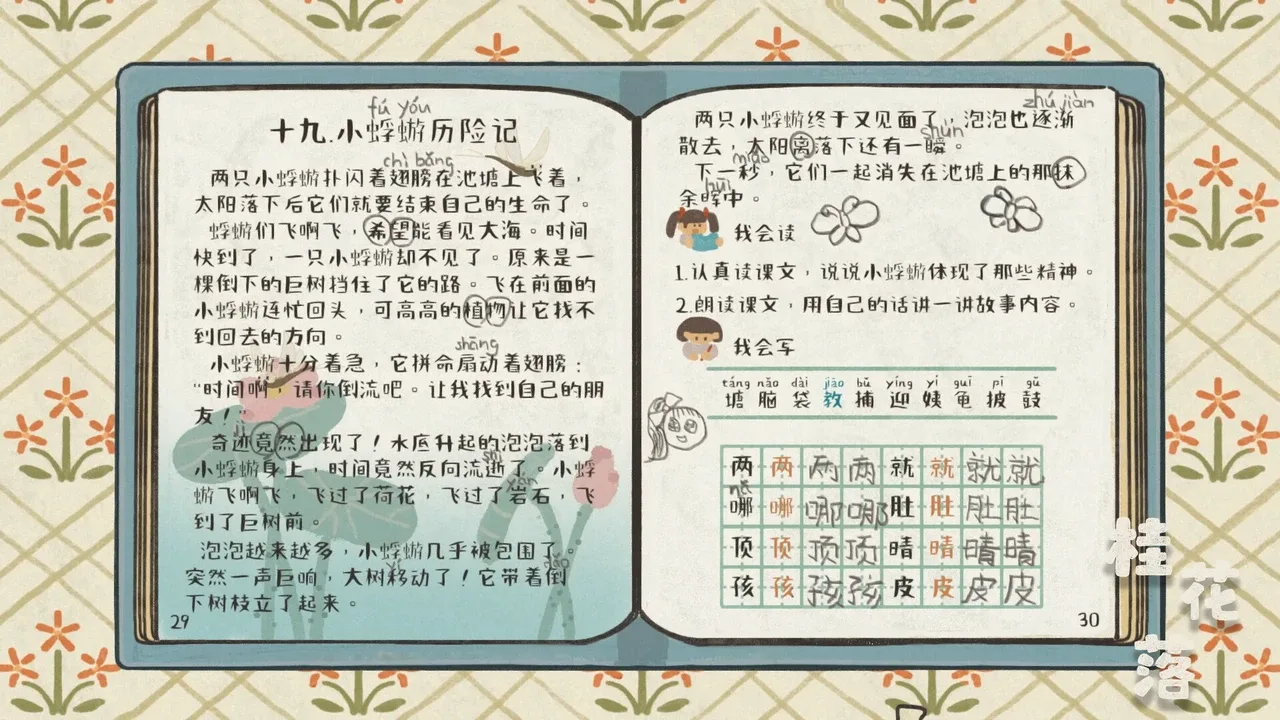 fú yóu
十九.小蜉蝣历险记
chì bǎng
两只小蜉蝣扑闪着翅膀在池塘上飞着，
太阳落下后它们就要结束自己的生命了。
蜉蝣们飞啊飞，希望能看见大海。时间
快到了，一只小蜉蝣却不见了。原来是一
棵倒下的巨树挡住了它的路。飞在前面的
小蜉蝣连忙回头，可高高的植物让它找不
到回去的方向。
shāng
小蜉蝣十分着急，它拼命扇动着翅膀：
“时间啊，请你倒流吧。让我找到自己的朋
友！”
奇迹竟然出现了！水底升起的泡泡落到
小蜉蝣身上，时间竟然反向流逝了。小蜉
shì
蝣飞啊飞，飞过了荷花，飞过了岩石，飞
yán
到了巨树前。
泡泡越来越多，小蜉蝣几乎被包围了。
突然一声巨响，大树移动了！它带着倒
yí
下树枝立了起来。
29
zhú jiàn
两只小蜉蝣终于又见面了，泡泡也逐渐
shùn
散去，太阳离落下还有一瞬。
miǎo
下一秒，它们一起消失在池塘上的那抹
huī
余晖中。
我会读
1.认真读课文，说说小蜉蝣体现了那些精神。
2.朗读课文，用自己的话讲一讲故事内容。
我会写
táng nǎo dài jiāo bǔ yíng yí guī pī gǔ
塘 脑 袋 教 捕 迎 姨 龟 披 鼓
两 两 两 两 就 就 就 就
nǎ
哪 哪 哪 哪 肚 肚 肚 肚
顶 顶 顶 顶 晴 晴 晴 晴
孩 孩 孩 孩 皮 皮 皮 皮
30
桂花落